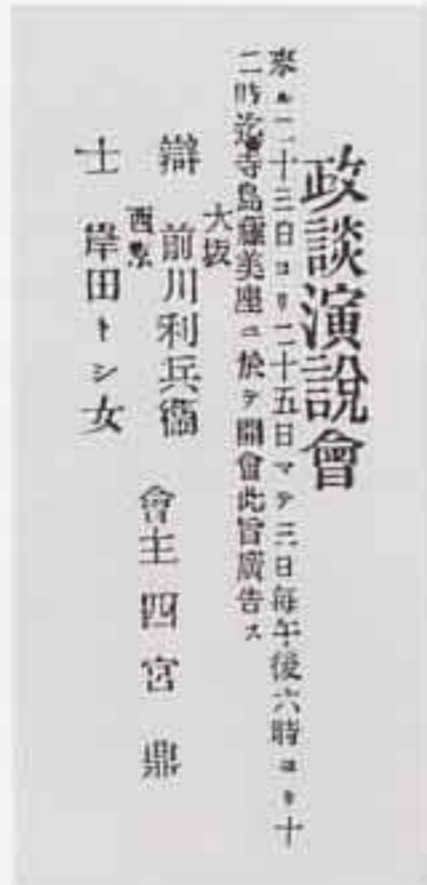 政談演説會
來ル二十三日ヨリ二十五日マテ三日每午後六時ヨリ十
二時迄寺島藤美座ニ於テ開會此旨廣告ス
大坂
辯 前川利兵衞
西京
士 岸田トシ女
會主四宮鼎